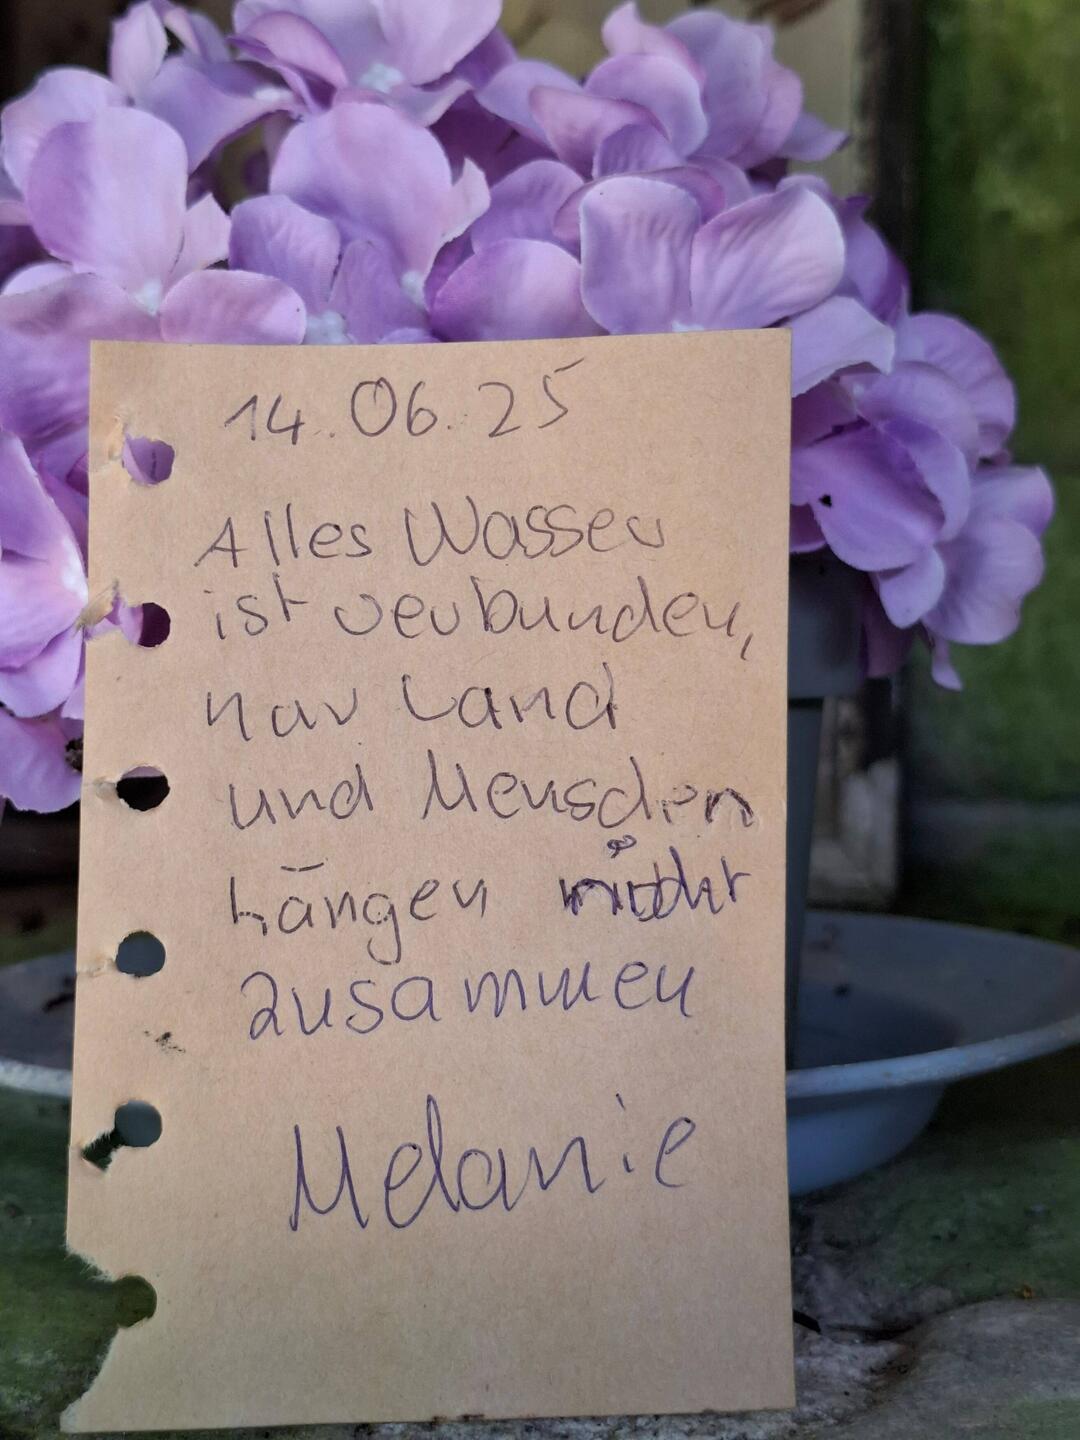 14.06.25
Alles Wasser
ist verbunden,
nur Land
und Menschen
hängen nicht
zusammen
Melanie